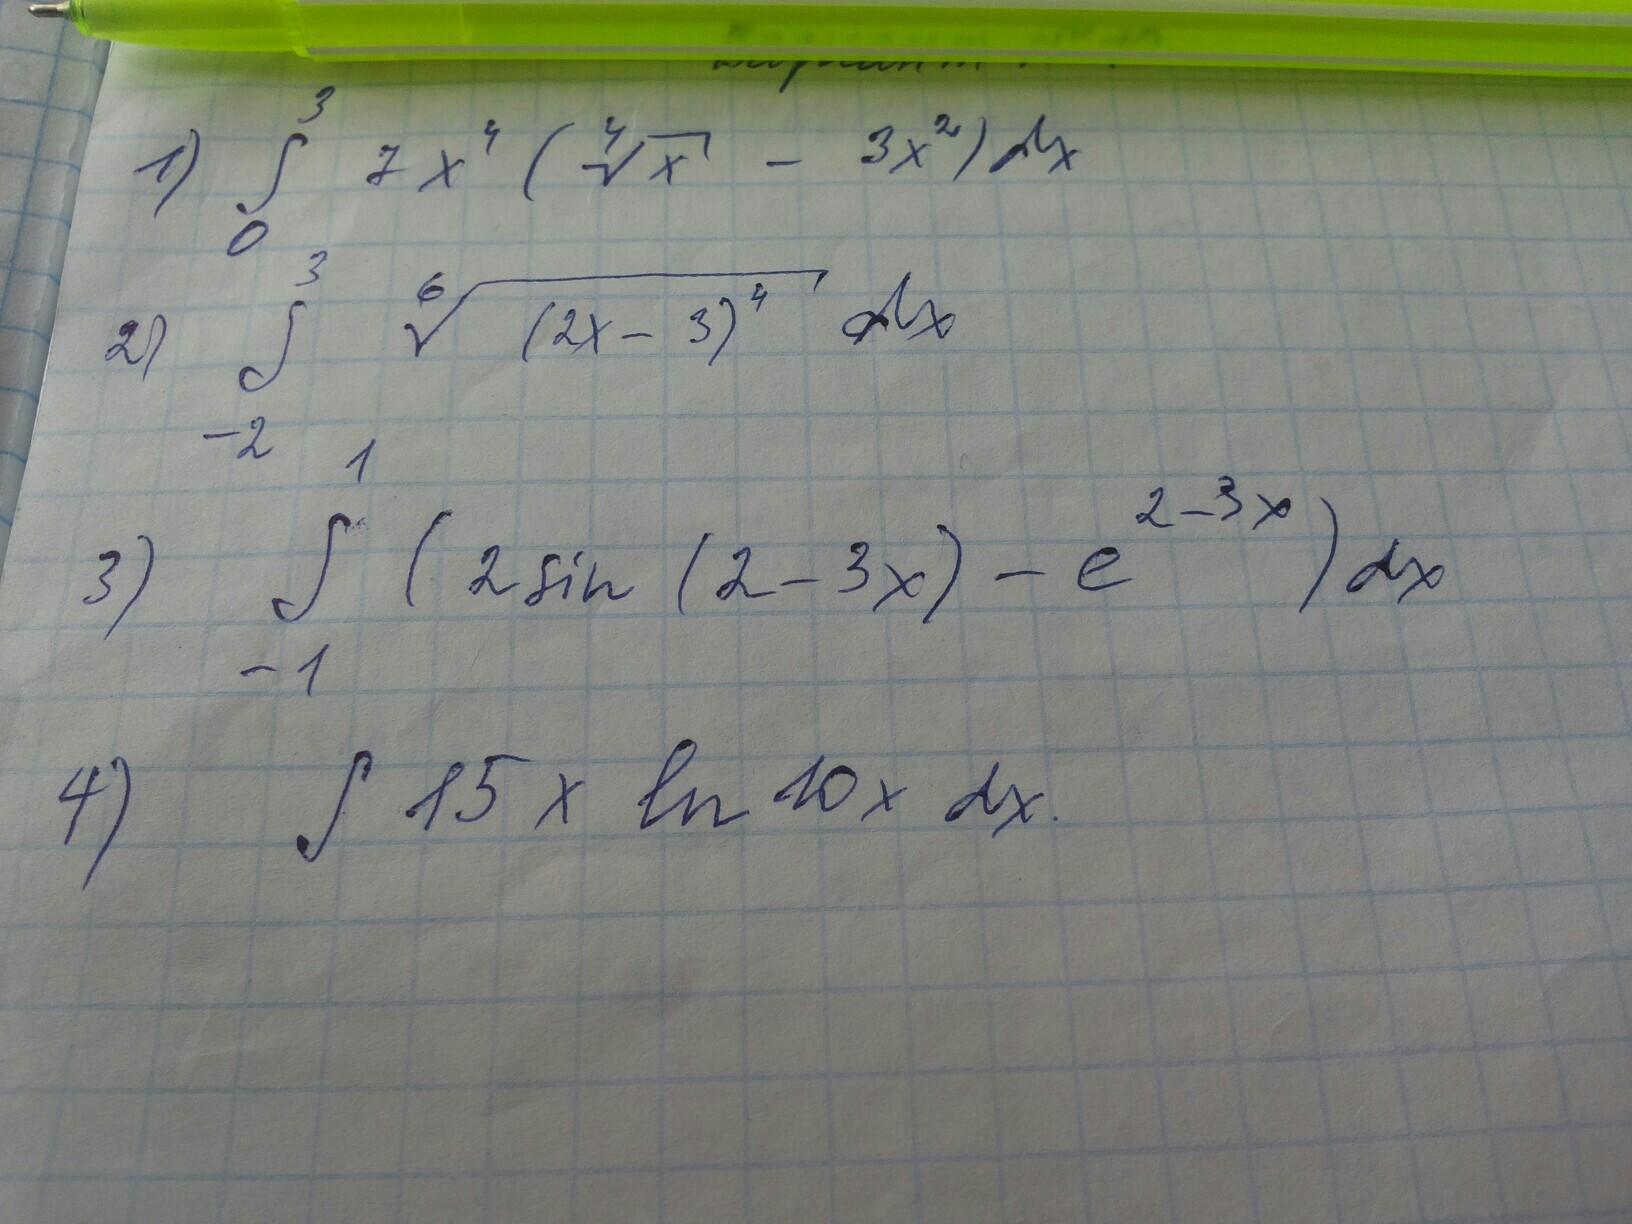 1) ∫₀³ 7x⁴ (⁴√x − 3x²) dx
2) ∫₋₂³ ⁶√(2x − 3)⁴ dx
3) ∫₋₁¹ (2 sin (2 − 3x) − e²⁻³ˣ) dx
4) ∫ 15 x ln 10 x dx.